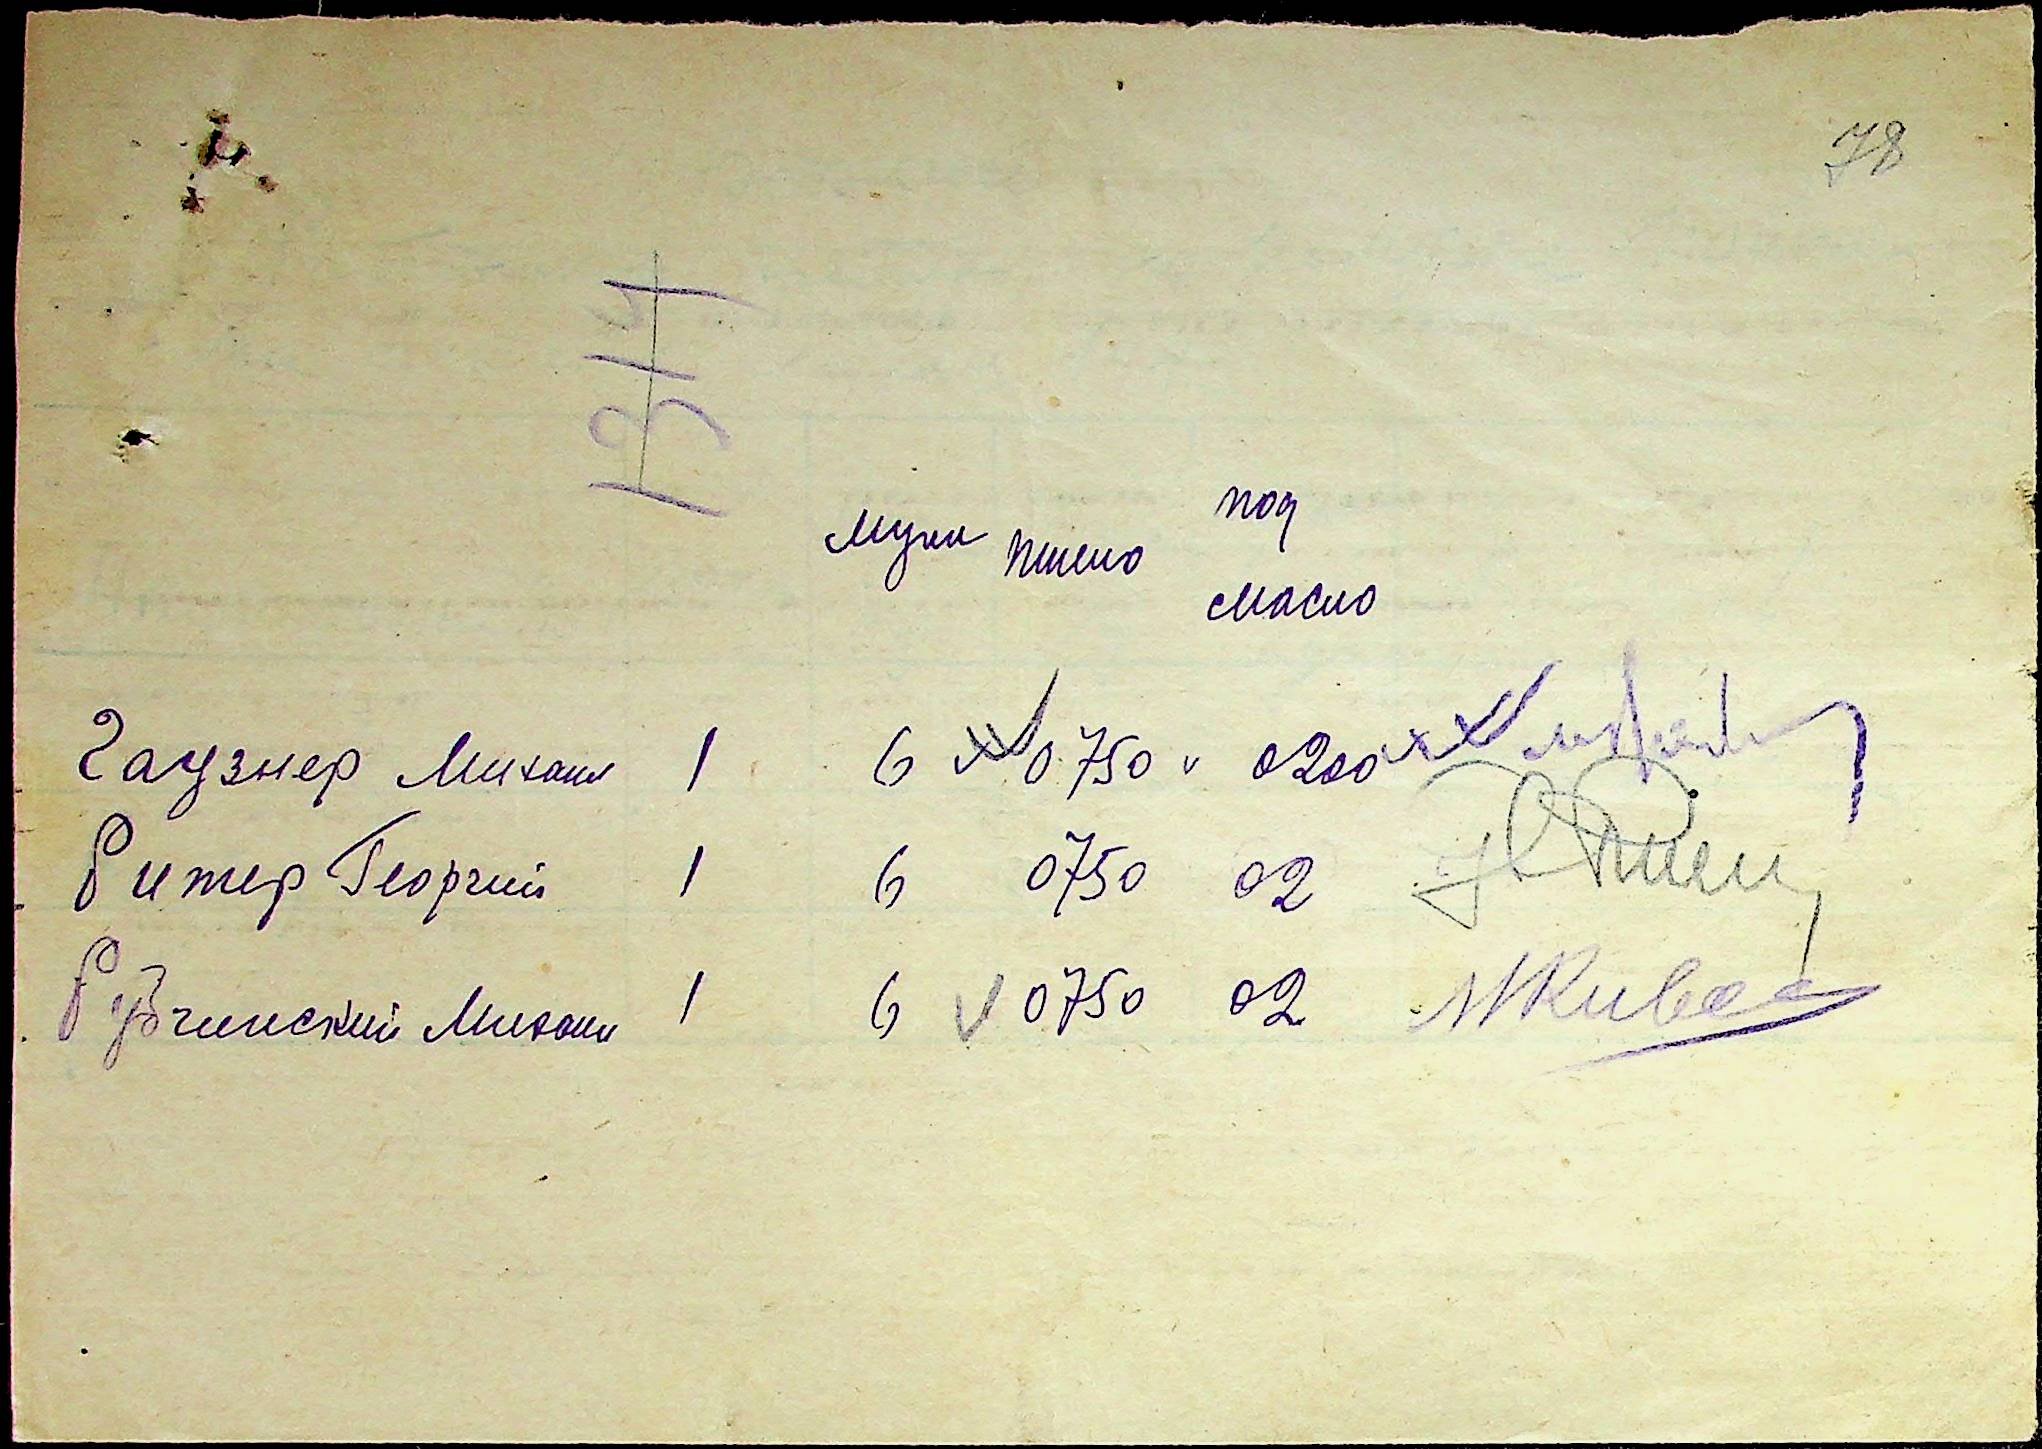 78
муки пшено под
масло
Гаузнер Михаил 1 6 0750 0200
Ритер Георгий 1 6 0750 02
Рубчинский Михаил 1 6 0750 02